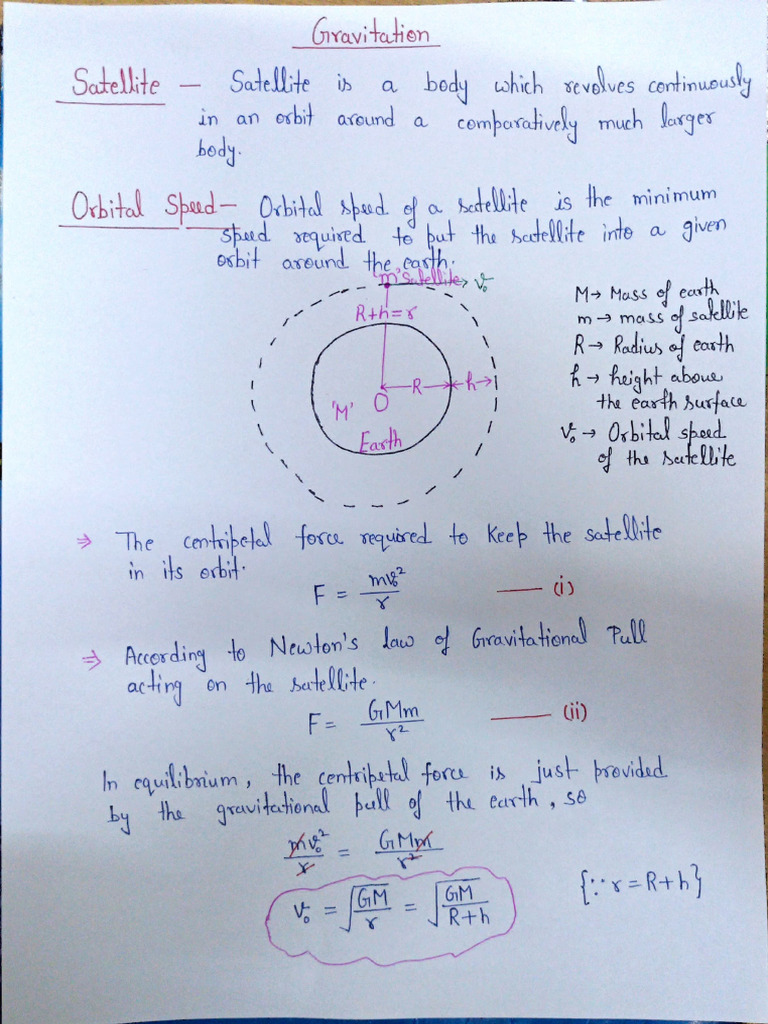 Gravitation
Satellite — Satellite is a body which revolves continuously
in an orbit around a comparatively much larger
body.
Orbital Speed — Orbital speed of a satellite is the minimum
speed required to put the satellite into a given
orbit around the earth.
'm' Satellite v₀
R+h=r
R h
'M' O
Earth
M → Mass of earth
m → mass of satellite
R → Radius of earth
h → height above
the earth surface
v₀ → Orbital speed
of the satellite
⇒ The centripetal force required to keep the satellite
in its orbit.
F = mv₀²/r — (i)
⇒ According to Newton's law of Gravitational Pull
acting on the satellite.
F = GMm/r² — (ii)
In equilibrium, the centripetal force is just provided
by the gravitational pull of the earth, so
mv₀²/r = GMm/r²
v₀ = √(GM/r) = √(GM/R+h) {∵ r = R+h}